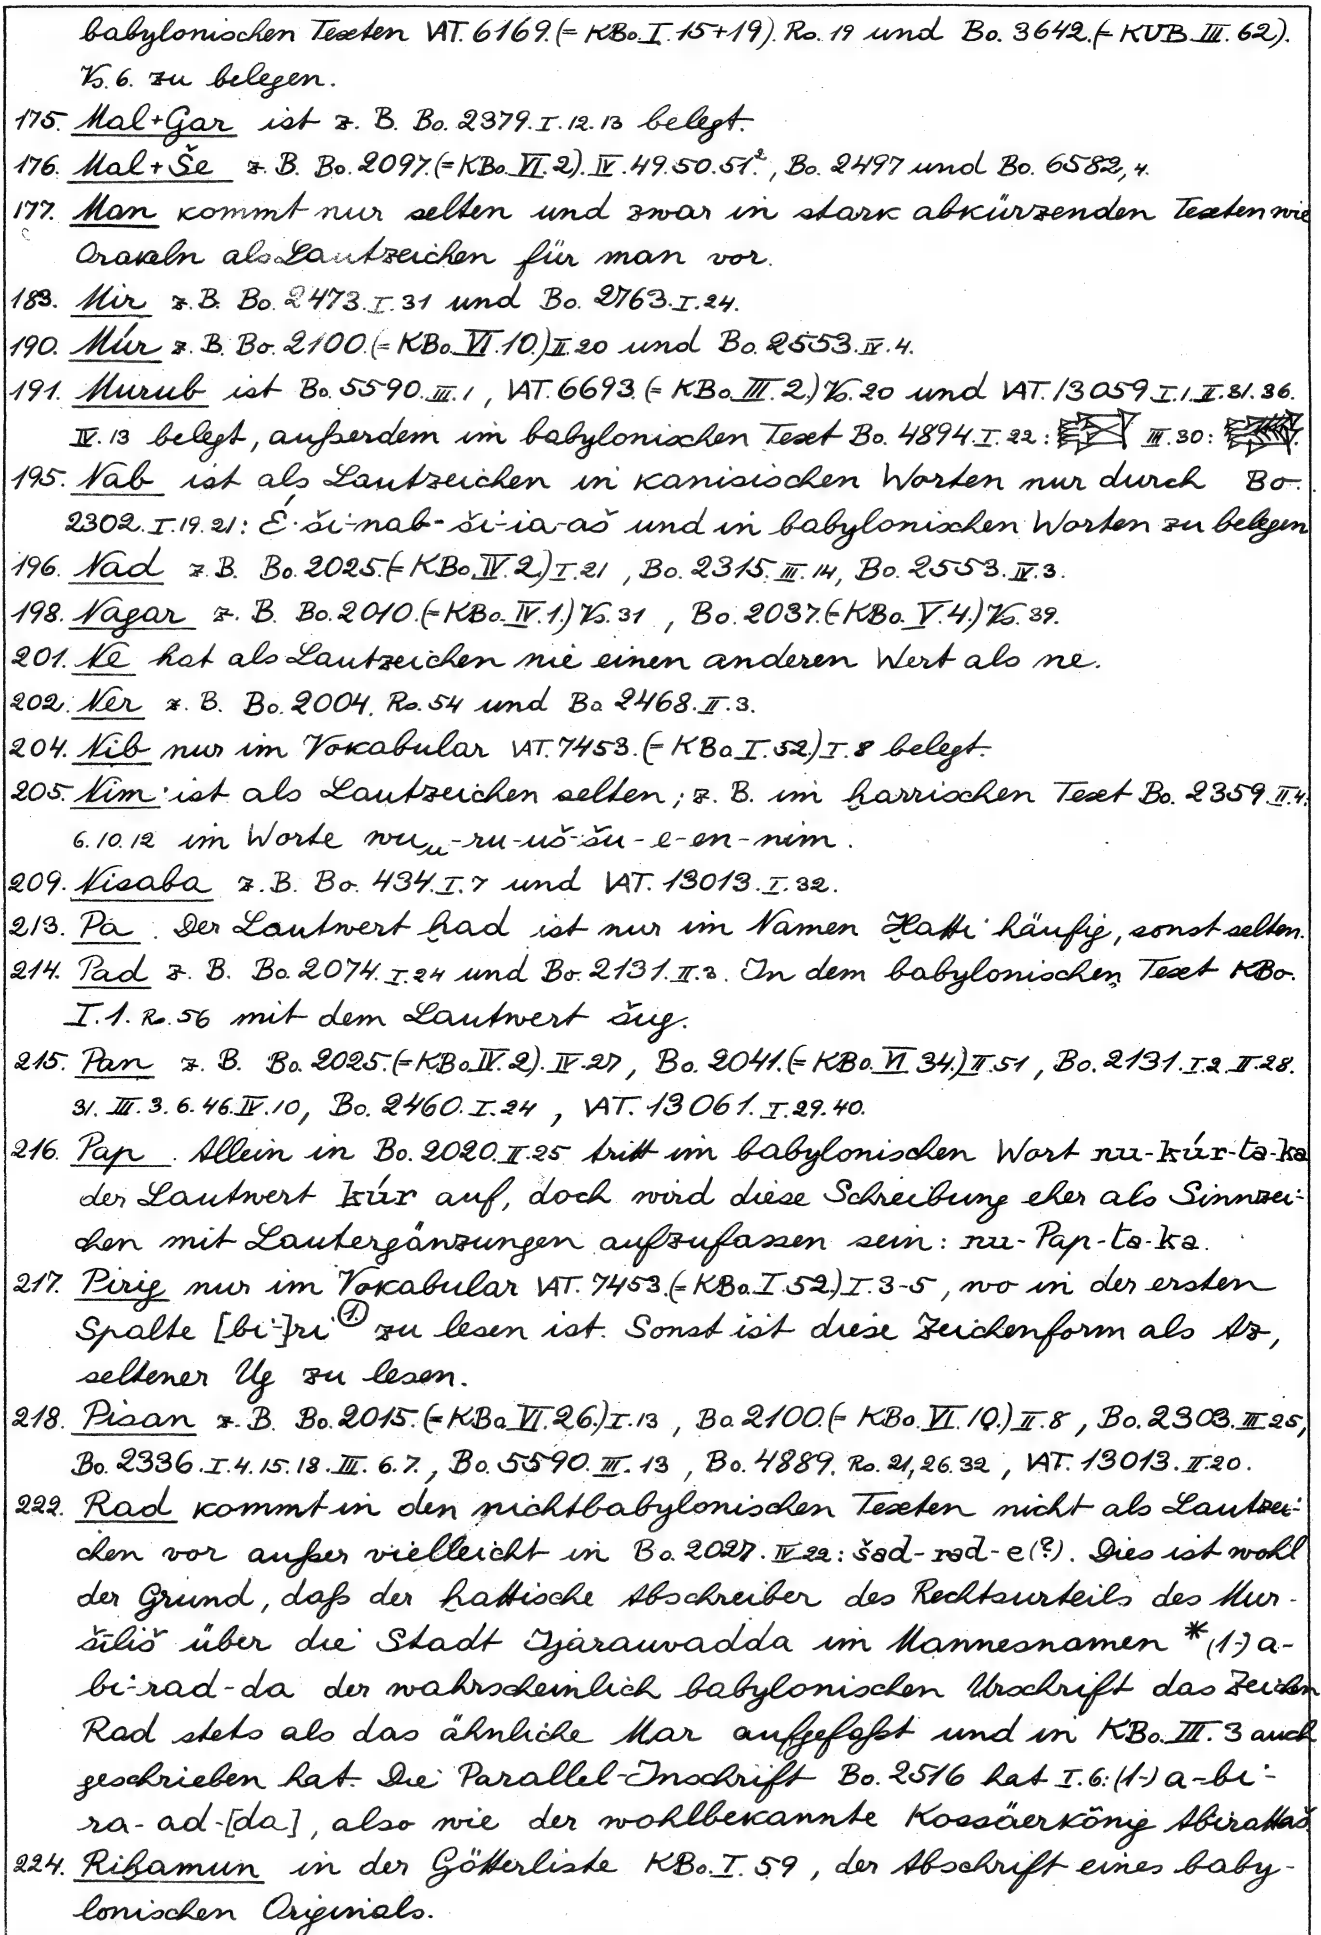 babylonischen Texten VAT. 6169. (= KBo. I. 15+19). Rs. 19 und Bo. 3642. (= KUB. III. 62).
Vs. 6. zu belegen.
175. Mal+Gar ist z. B. Bo. 2379. I. 12. 13 belegt.
176. Mal+Še z. B. Bo. 2097. (= KBo. VI. 2). IV. 49. 50. 51², Bo. 2497 und Bo. 6582, 4.
177. Man kommt nur selten und zwar in stark abkürzenden Texten wie
Orakeln als Lautzeichen für man vor.
183. Mir z. B. Bo. 2473. I. 31 und Bo. 2763. I. 24.
190. Múr z. B. Bo. 2100. (= KBo. VI. 10.) II. 20 und Bo. 2553. IV. 4.
191. Murub ist Bo. 5590. III. 1, VAT. 6693. (= KBo. III. 2.) Vs. 20 und VAT. 13059 I. 1. II. 31. 36.
IV. 13 belegt, außerdem im babylonischen Text Bo. 4894. I. 22: III. 30:
195. Nab ist als Lautzeichen in kanisischen Worten nur durch Bo.
2302. I. 19. 21: É-ši-nab-ši-ia-aš und in babylonischen Worten zu belegen
196. Nad z. B. Bo. 2025. (= KBo. IV. 2.) I. 21, Bo. 2315. III. 14, Bo. 2553. IV. 3.
198. Nagar z. B. Bo. 2010. (= KBo. IV. 1.) Vs. 31, Bo. 2037. (= KBo. V. 4.) Vs. 39.
201. Ne hat als Lautzeichen nie einen anderen Wert als ne.
202. Ner z. B. Bo. 2004. Rs. 54 und Bo. 2468. II. 3.
204. Nib nur im Vokabular VAT. 7453. (= KBo. I. 52.) I. 8 belegt.
205. Nim ist als Lautzeichen selten; z. B. im ḫarrischen Text Bo. 2359. II. 4.
6. 10. 12 im Worte wuᵤ-ru-uš-šu-e-en-nim.
209. Nisaba z. B. Bo. 434. I. 7 und VAT. 13013. I. 32.
213. Pa. Der Lautwert ḫad ist nur im Namen Ḫatti häufig, sonst selten.
214. Pad z. B. Bo. 2074. I. 24 und Bo. 2131. II. 3. In dem babylonischen Text KBo.
I. 1. Rs. 56 mit dem Lautwert šug.
215. Pan z. B. Bo. 2025. (= KBo. IV. 2). IV. 27, Bo. 2041. (= KBo. VI. 34.) II. 51, Bo. 2131. I. 2. II. 28.
31. III. 3. 6. 46. IV. 10, Bo. 2460. I. 24, VAT. 13061. I. 29. 40.
216. Pap. Allein in Bo. 2020. II. 25 tritt im babylonischen Wort nu-kúr-ta-ka
der Lautwert kúr auf, doch wird diese Schreibung eher als Sinnzei-
chen mit Lautergänzungen aufzufassen sein: nu-Pap-ta-ka.
217. Pirig nur im Vokabular VAT. 7453. (= KBo. I. 52.) I. 3-5, wo in der ersten
Spalte [bi-]ri (1.) zu lesen ist. Sonst ist diese Zeichenform als Az,
seltener Ug zu lesen.
218. Pisan z. B. Bo. 2015. (= KBo. VI. 26.) I. 13, Bo. 2100. (= KBo. VI. 10.) II. 8, Bo. 2303. III. 25,
Bo. 2336. I. 4. 15. 18. III. 6. 7., Bo. 5590. III. 13, Bo. 4889. Rs. 21, 26. 32, VAT. 13013. II. 20.
222. Rad kommt in den nichtbabylonischen Texten nicht als Lautzei-
chen vor außer vielleicht in Bo. 2027. IV. 22: šad-rad-e(?). Dies ist wohl
der Grund, daß der ḫattische Abschreiber des Rechtsurteils des Mur-
šiliš über die Stadt Ijarauvadda im Mannesnamen *(1-) a-
bi-rad-da der wahrscheinlich babylonischen Urschrift das Zeichen
Rad stets als das ähnliche Mar aufgefaßt und in KBo. III. 3 auch
geschrieben hat. Die Parallel-Inschrift Bo. 2516 hat I. 6: (1-) a-bi-
ra-ad-[da], also wie der wohlbekannte Kossäerkönig Abirattaš.
224. Riḫamun in der Götterliste KBo. I. 59, der Abschrift eines baby-
lonischen Originals.